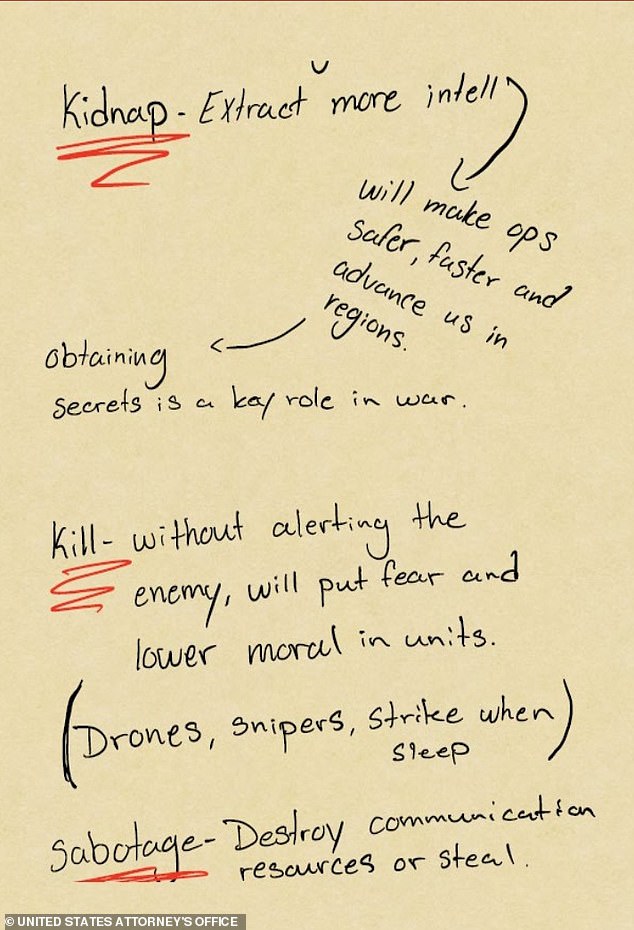 Kidnap - Extract more intell
will make ops
safer, faster and
advance us in
regions.
obtaining
secrets is a key role in war.
Kill - without alerting the
enemy, will put fear and
lower moral in units.
(Drones, snipers, strike when
sleep)
Sabotage - Destroy communication
resources or steal.
© UNITED STATES ATTORNEY'S OFFICE